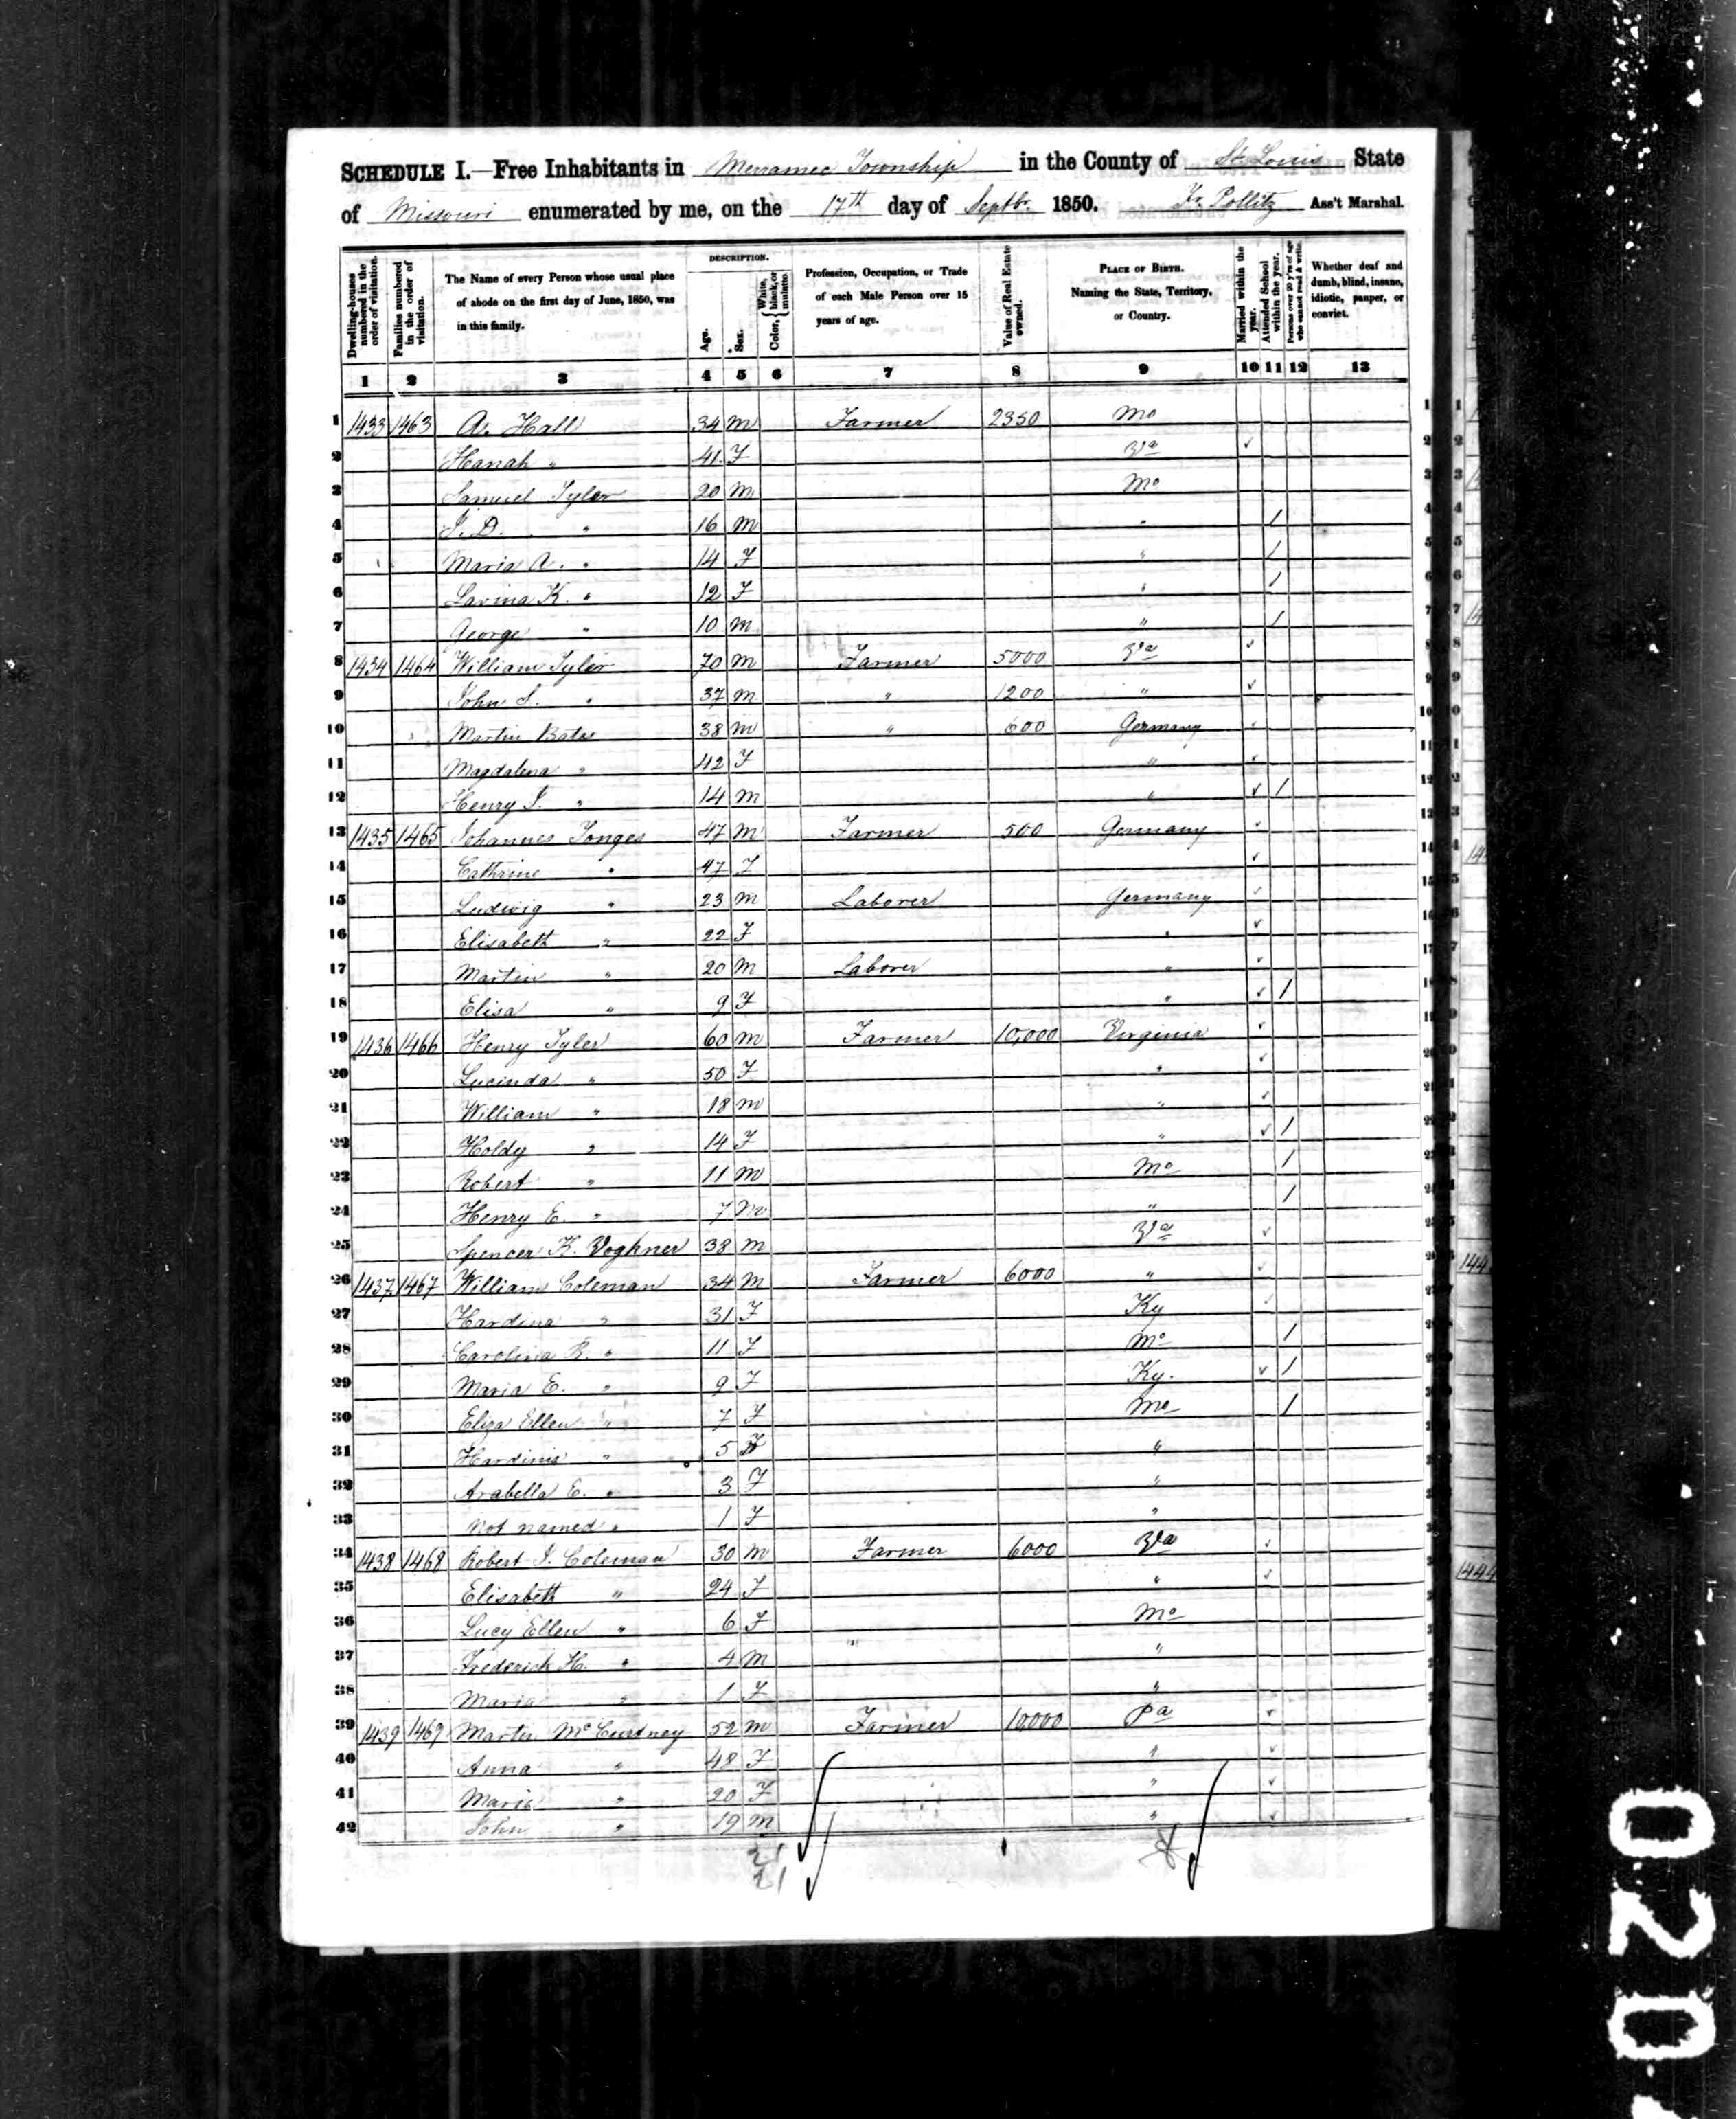 SCHEDULE I.—Free Inhabitants in Merramec Township in the County of St. Louis State
of Missouri enumerated by me, on the 17th day of Septbr. 1850. Fr. Pollitz Ass't Marshal.
Dwelling-houses numbered in the order of visitation.
Families numbered in the order of visitation.
The Name of every Person whose usual place of abode on the first day of June, 1850, was in this family.
DESCRIPTION.
Age.
Sex.
Color, { White, black, or mulatto.
Profession, Occupation, or Trade of each Male Person over 15 years of age.
Value of Real Estate owned.
PLACE OF BIRTH. Naming the State, Territory, or Country.
Married within the year.
Attended School within the year.
Persons over 20 y'rs of age who cannot read & write.
Whether deaf and dumb, blind, insane, idiotic, pauper, or convict.
1 2 3 4 5 6 7 8 9 10 11 12 13
1 1433 1463 A. Hall 34 m Farmer 2350 Mo 1
2 Hanah " 41 F Va ✓ 2
3 Samuel Tyler 20 m Mo 3
4 J. D. " 16 m " / 4
5 Maria A. " 14 F " / 5
6 Lavina K. " 12 F " / 6
7 George " 10 m " / 7
8 1434 1464 William Tyler 70 m Farmer 5000 Va ✓ 8
9 John S. " 37 m " 1200 " ✓ 9
10 Martin Bates 38 m " 600 Germany ✓ 10
11 Magdalena " 42 F " ✓ 11
12 Henry J. " 14 m " ✓ / 12
13 1435 1465 Johannes Tonges 47 m Farmer 500 Germany ✓ 13
14 Cathrine " 47 F ✓ 14
15 Ludwig " 23 m Laborer Germany ✓ 15
16 Elisabeth " 22 F " ✓ 16
17 Martin " 20 m Laborer " ✓ 17
18 Elisa " 9 F " ✓ / 18
19 1436 1466 Henry Tyler 60 m Farmer 10,000 Virginia ✓
20 Lucinda " 50 F " ✓
21 William " 18 m " ✓
22 Holdy " 14 F " ✓ /
23 Robert " 11 m Mo /
24 Henry E. " 7 m " /
25 Spencer K. Voghner 38 m Va ✓
26 1437 1467 William Coleman 34 m Farmer 6000 " ✓
27 Hardina " 31 F Ky ✓
28 Carolina R. " 11 F Mo /
29 Maria E. " 9 F Ky. ✓ /
30 Eliza Ellen " 7 F Mo /
31 Hardinis " 5 F "
32 Arabella E. " 3 F "
33 Not named " 1 F "
34 1438 1468 Robert J. Coleman 30 m Farmer 6000 Va ✓
35 Elisabeth " 24 F " ✓
36 Lucy Ellen " 6 F Mo
37 Frederick H. " 4 m "
38 Maria " 1 F "
39 1439 1469 Martin McCurtney 52 m Farmer 10,000 Pa ✓
40 Anna " 48 F " ✓
41 Maria " 20 F " ✓
42 John " 19 m " ✓
21
21
0 2 0